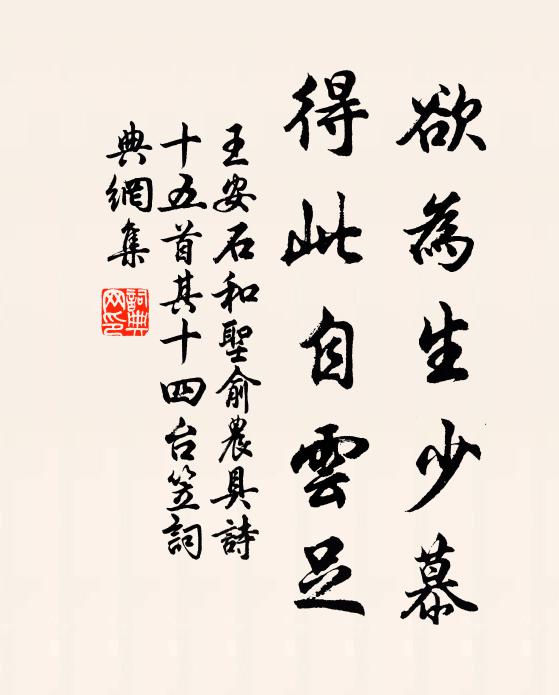 欲為生少慕
得此自雲足
王安石和聖俞農具詩
十五首其十四台笠詞
典網集
詞典網印